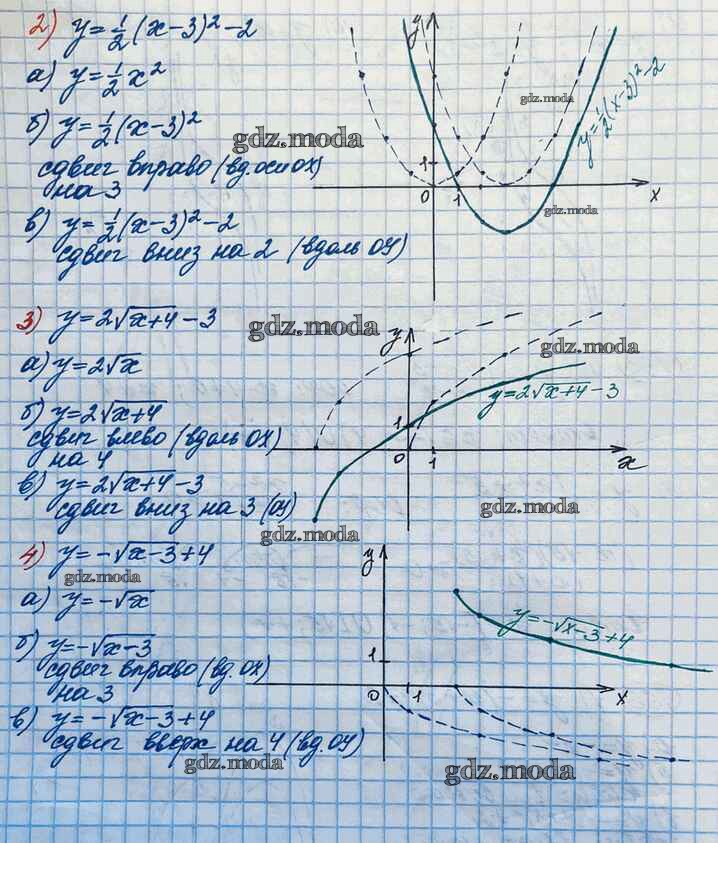 2) y = 1/2 (x-3)² - 2
а) y = 1/2 x²
б) y = 1/2 (x-3)²
сдвиг вправо (вд. оси OX)
на 3
в) y = 1/2 (x-3)² - 2
сдвиг вниз на 2 (вдоль OY)
y
1
0
1
x
y = 1/2 (x-3)² - 2
gdz.moda
gdz.moda
gdz.moda
3) y = 2√(x+4) - 3
gdz.moda
а) y = 2√x
б) y = 2√(x+4)
сдвиг влево (вдоль OX)
на 4
в) y = 2√(x+4) - 3
сдвиг вниз на 3 (OY)
y
1
0
1
x
y = 2√(x+4) - 3
gdz.moda
gdz.moda
gdz.moda
4) y = -√(x-3) + 4
gdz.moda
а) y = -√x
б) y = -√(x-3)
сдвиг вправо (вд. OX)
на 3
в) y = -√(x-3) + 4
сдвиг вверх на 4 (вд. OY)
gdz.moda
y
1
0
1
x
y = -√(x-3) + 4
gdz.moda